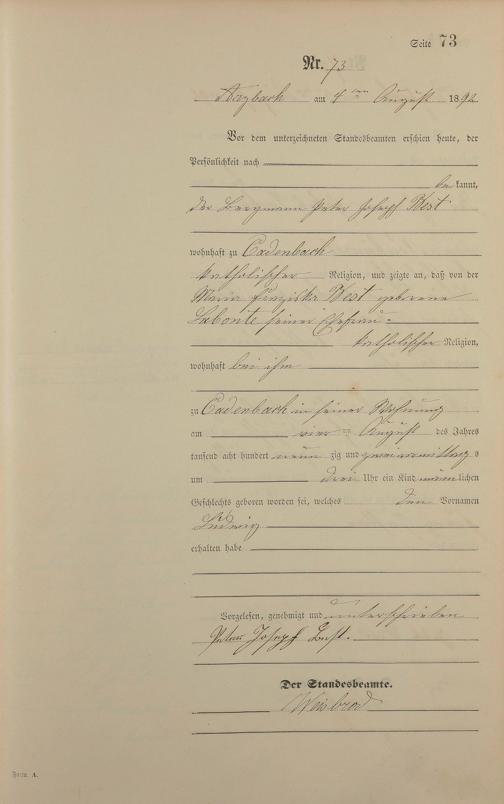 Seite 73
Nr. 73
Arzbach am 4 ten August 1892
Vor dem unterzeichneten Standesbeamten erschien heute, der
Persönlichkeit nach
be kannt,
der Bergmann Peter Joseph Best
wohnhaft zu Cadenbach
katholischer Religion, und zeigte an, daß von der
Maria Franziska Best geborene
Labonte seiner Ehefrau
katholischer Religion,
wohnhaft bei ihm
zu Cadenbach in seiner Wohnung
am vier ten August des Jahres
tausend acht hundert neun zig und zwei vormittags
um drei Uhr ein Kind männlichen
Geschlechts geboren worden sei, welches den Vornamen
Ludwig
erhalten habe
Vorgelesen, genehmigt und unterschrieben
Peter Joseph Best.
Der Standesbeamte.
Weisbrod
Form. A.